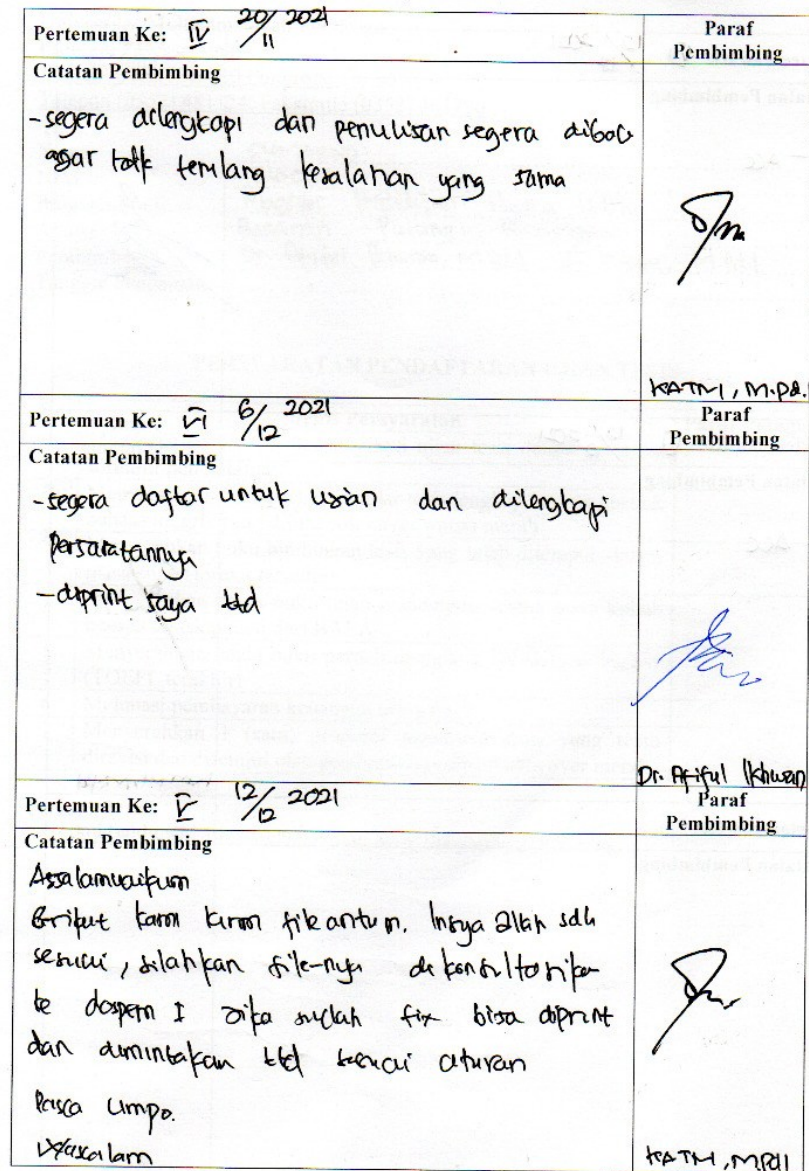 Pertemuan Ke: IV 20/11 2021
Paraf
Pembimbing
Catatan Pembimbing
-segera dilengkapi dan penulisan segera dibaca
agar tidak terulang kesalahan yang sama
KATNI, M.Pd.I
Pertemuan Ke: VI 6/12 2021
Paraf
Pembimbing
Catatan Pembimbing
-segera daftar untuk ujian dan dilengkapi
persaratannya
-diprint saya ttd
Dr. Afiful Ikhwan
Pertemuan Ke: V 12/12 2021
Paraf
Pembimbing
Catatan Pembimbing
Assalamualaikum
Berikut kami kirim file antum. Insya allah sdh
sesuai, silahkan file-nya di konsultasikan
ke dospem I jika sudah fix bisa diprint
dan dimintakan ttd sesuai aturan
Pasca Umpo.
Wassalam
KATNI, M.PdI